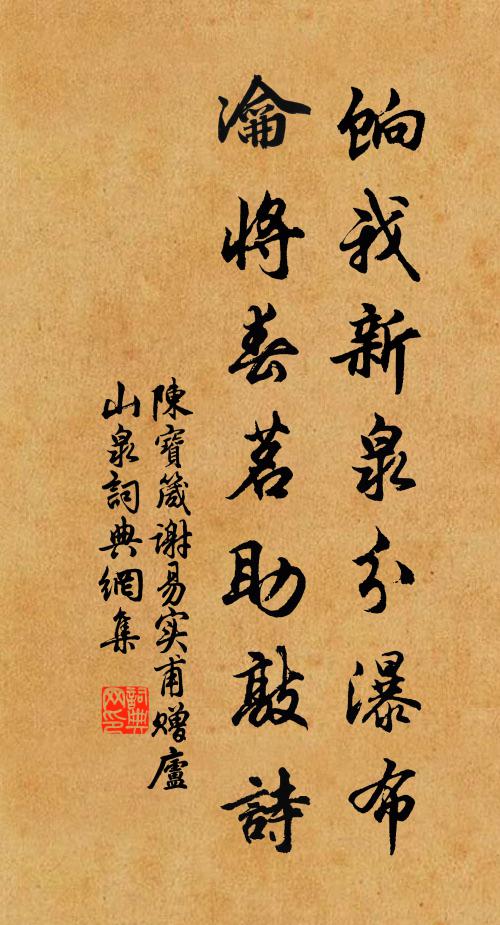 餉我新泉分瀑布
瀹將春茗助敲詩
陳寶箴謝易实甫贈廬
山泉詞典網集
詞典网印